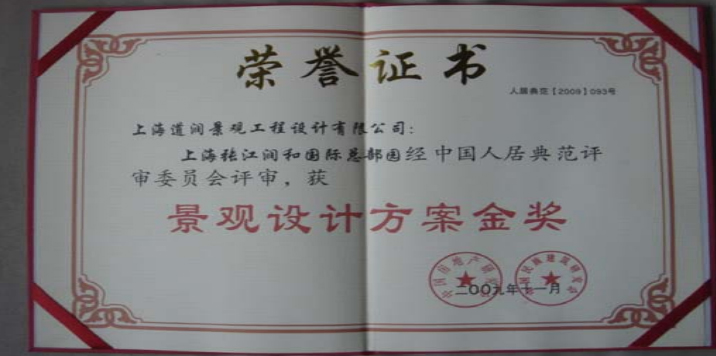 荣誉证书
人居典范【2009】093号
上海道润景观工程设计有限公司：
上海张江润和国际总部园经中国人居典范评
审委员会评审，获
景观设计方案金奖
二00九年十一月